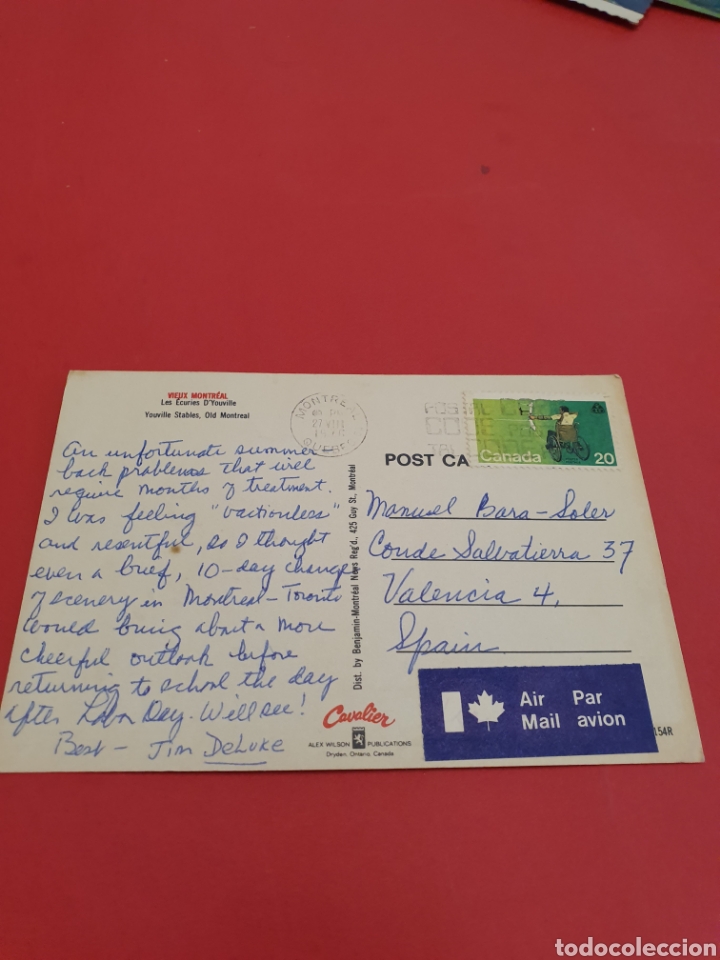 VIEUX MONTRÉAL
Les Écuries D'Youville
Youville Stables, Old Montreal
An unfortunate summer
back problems that will
require months of treatment.
I was feeling "vactionless"
and resentful, so I thought
even a brief, 10-day change
of scenery in Montreal-Toronto
would bring about a more
cheerful outlook before
returning to school the day
after Labor Day. Will see!
Best - Jim DeLuke
Dist. by Benjamin-Montréal News Reg'd., 425 Guy St., Montréal
Cavalier
ALEX WILSON PUBLICATIONS
Dryden, Ontario, Canada
MONTRÉAL
27 VIII
QUEBEC
POSTAL
CODE
Canada 20
POST CA
Manuel Bara-Soler
Conde Salvatierra 37
Valencia 4,
Spain
Air Par
Mail avion
154R
todocoleccion